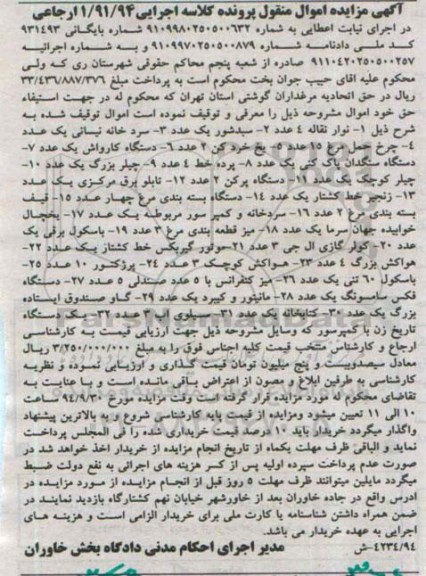 آگهی مزایده اموال منقول پرونده کلاسه اجرایی۱/۹۱/۹۴ ارجاعی
در اجرای نیابت اعطایی به شماره ۹۱۰۹۹۸۰۲۵۰۵۰۰۶۳۲ شماره بایگانی ۹۳۱۴۹۳
کد ملی دادنامه شماره ۹۱۰۹۹۷۰۲۵۰۵۰۰۸۷۹ و به شماره اجرائیه
۹۱۱۰۴۲۰۲۵۰۵۰۰۲۵۷ صادره از شعبه پنجم محاکم حقوقی شهرستان ری که ولی
محکوم علیه اقای حبیب جوان بخت محکوم است به پرداخت مبلغ ۳۳/۴۳۶/۸۸۷/۳۷۶
ریال در حق اتحادیه مرغداران گوشتی استان تهران که محکوم له در جهت استیفاء
حق خود اموال مشروحه ذیل را معرفی و توقیف نموده است اموال توقیف شده به
شرح ذیل ۱- نوار نقاله ۴ عدد ۲- سبدشور یک عدد ۳- سرد خانه نبساتی یک عدد
۴- چرخ حمل مرغ ۱۵ عدد ۵- یخ خرد کن ۲ عدد ۶- دستگاه کارواش یک عدد ۷-
دستگاه سنگدان پاک کنی یک عدد ۸- پرده خط ۴ عدد ۹- چیلر بزرگ یک عدد ۱۰-
چیلر کوچک یک عدد ۱۱- دستگاه پرکن ۲ عدد ۱۲- تابلو برق مرکزی یک عدد
۱۳- زنجیر خط کشتار یک عدد ۱۴- دستگاه بسته بندی مرغ چهار عدد ۱۵- قیف
بسته بندی مرغ ۲ عدد ۱۶- سردخانه و کمپرسور مربوطه یک عدد ۱۷- یخچال
خوابیده جهان سرما یک عدد ۱۸- میز قطعه بندی مرغ ۳ عدد ۱۹- باسکول برقی یک
عدد ۲۰- کولر گازی ال جی ۳ عدد ۲۱-موتور گیربکس خط کشتار یک عدد ۲۲-
هواکش بزرگ ۴ عدد ۲۳- هواکش کوچک ۳ عدد ۲۴- پرژکتور ۱۰ عدد ۲۵-
باسکول ۶۰ تنی یک عدد ۲۶- میز کنفرانس با ۵ عدد صندلی ۵ عدد ۲۷- دستگاه
فکس سامسونگ یک عدد ۲۸- مانیتور و کیبرد یک عدد ۲۹- گاو صندوق ایستاده
بزرگ یک عدد ۳۰- کتابخانه یک عدد ۳۱- سیلوی آب ۳ عدد ۳۲- یک دستگاه
تاریخ زن با کمپرسور که وسایل مشروحه ذیل جهت ارزیابی قیمت به کارشناسی
ارجاع و کارشناس منتخب قیمت کلیه اجناس فوق را به مبلغ ۳/۲۵۰/۰۰۰/۰۰۰ ریال
معادل سیصدوبیست و پنج میلیون تومان قیمت گذاری و ارزیابی نموده و نظریه
کارشناسی به طرفین ابلاغ و مصون از اعتراض باقی مانده است و با عنایت به
تقاضای محکوم له مورد مزایده قرار گرفته است وقت مزایده مورخ ۹۴/۹/۳۰ ساعت
۱۰ الی ۱۱ تعیین میشود ومزایده از قیمت پایه کارشناسی شروع و به بالاترین پیشنهاد
واگذار میگردد خریدار باید ۱۰ درصد قیمت خریداری شده را فی المجلس پرداخت
نماید و الباقی ظرف مهلت یکماه از تاریخ انجام مزایده از خریدار اخذ خواهد شد در
صورت عدم پرداخت سپرده اولیه پس از کسر هزینه های اجرائی به نفع دولت ضبط
میگردد مایلین میتوانند ظرف مهلت ۵ روز قبل از انجام مزایده از مورد مزایده در
ادرس واقع در جاده خاوران بعد از خاورشهر خیابان نهم کشتارگاه بازدید نمایند در
ضمن همراه داشتن شناسنامه یا کارت ملی برای خریدار الزامی است و هزینه های
اجرایی به عهده خریدار می باشد.
۴۲۳۴/۹۴-ش مدیر اجرای احکام مدنی دادگاه بخش خاوران